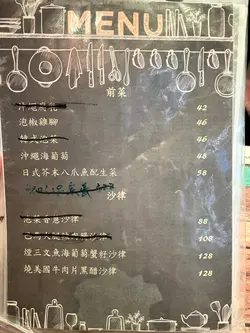 MENU
前菜
42
泡椒雞腳 46
韓式泡菜 46
沖繩海葡萄 48
日式芥末八爪魚配生菜 58
沙律
88
沙律 108
煙三文魚海葡萄蟹籽沙律 128
燒美國牛肉片黑醋沙律 128